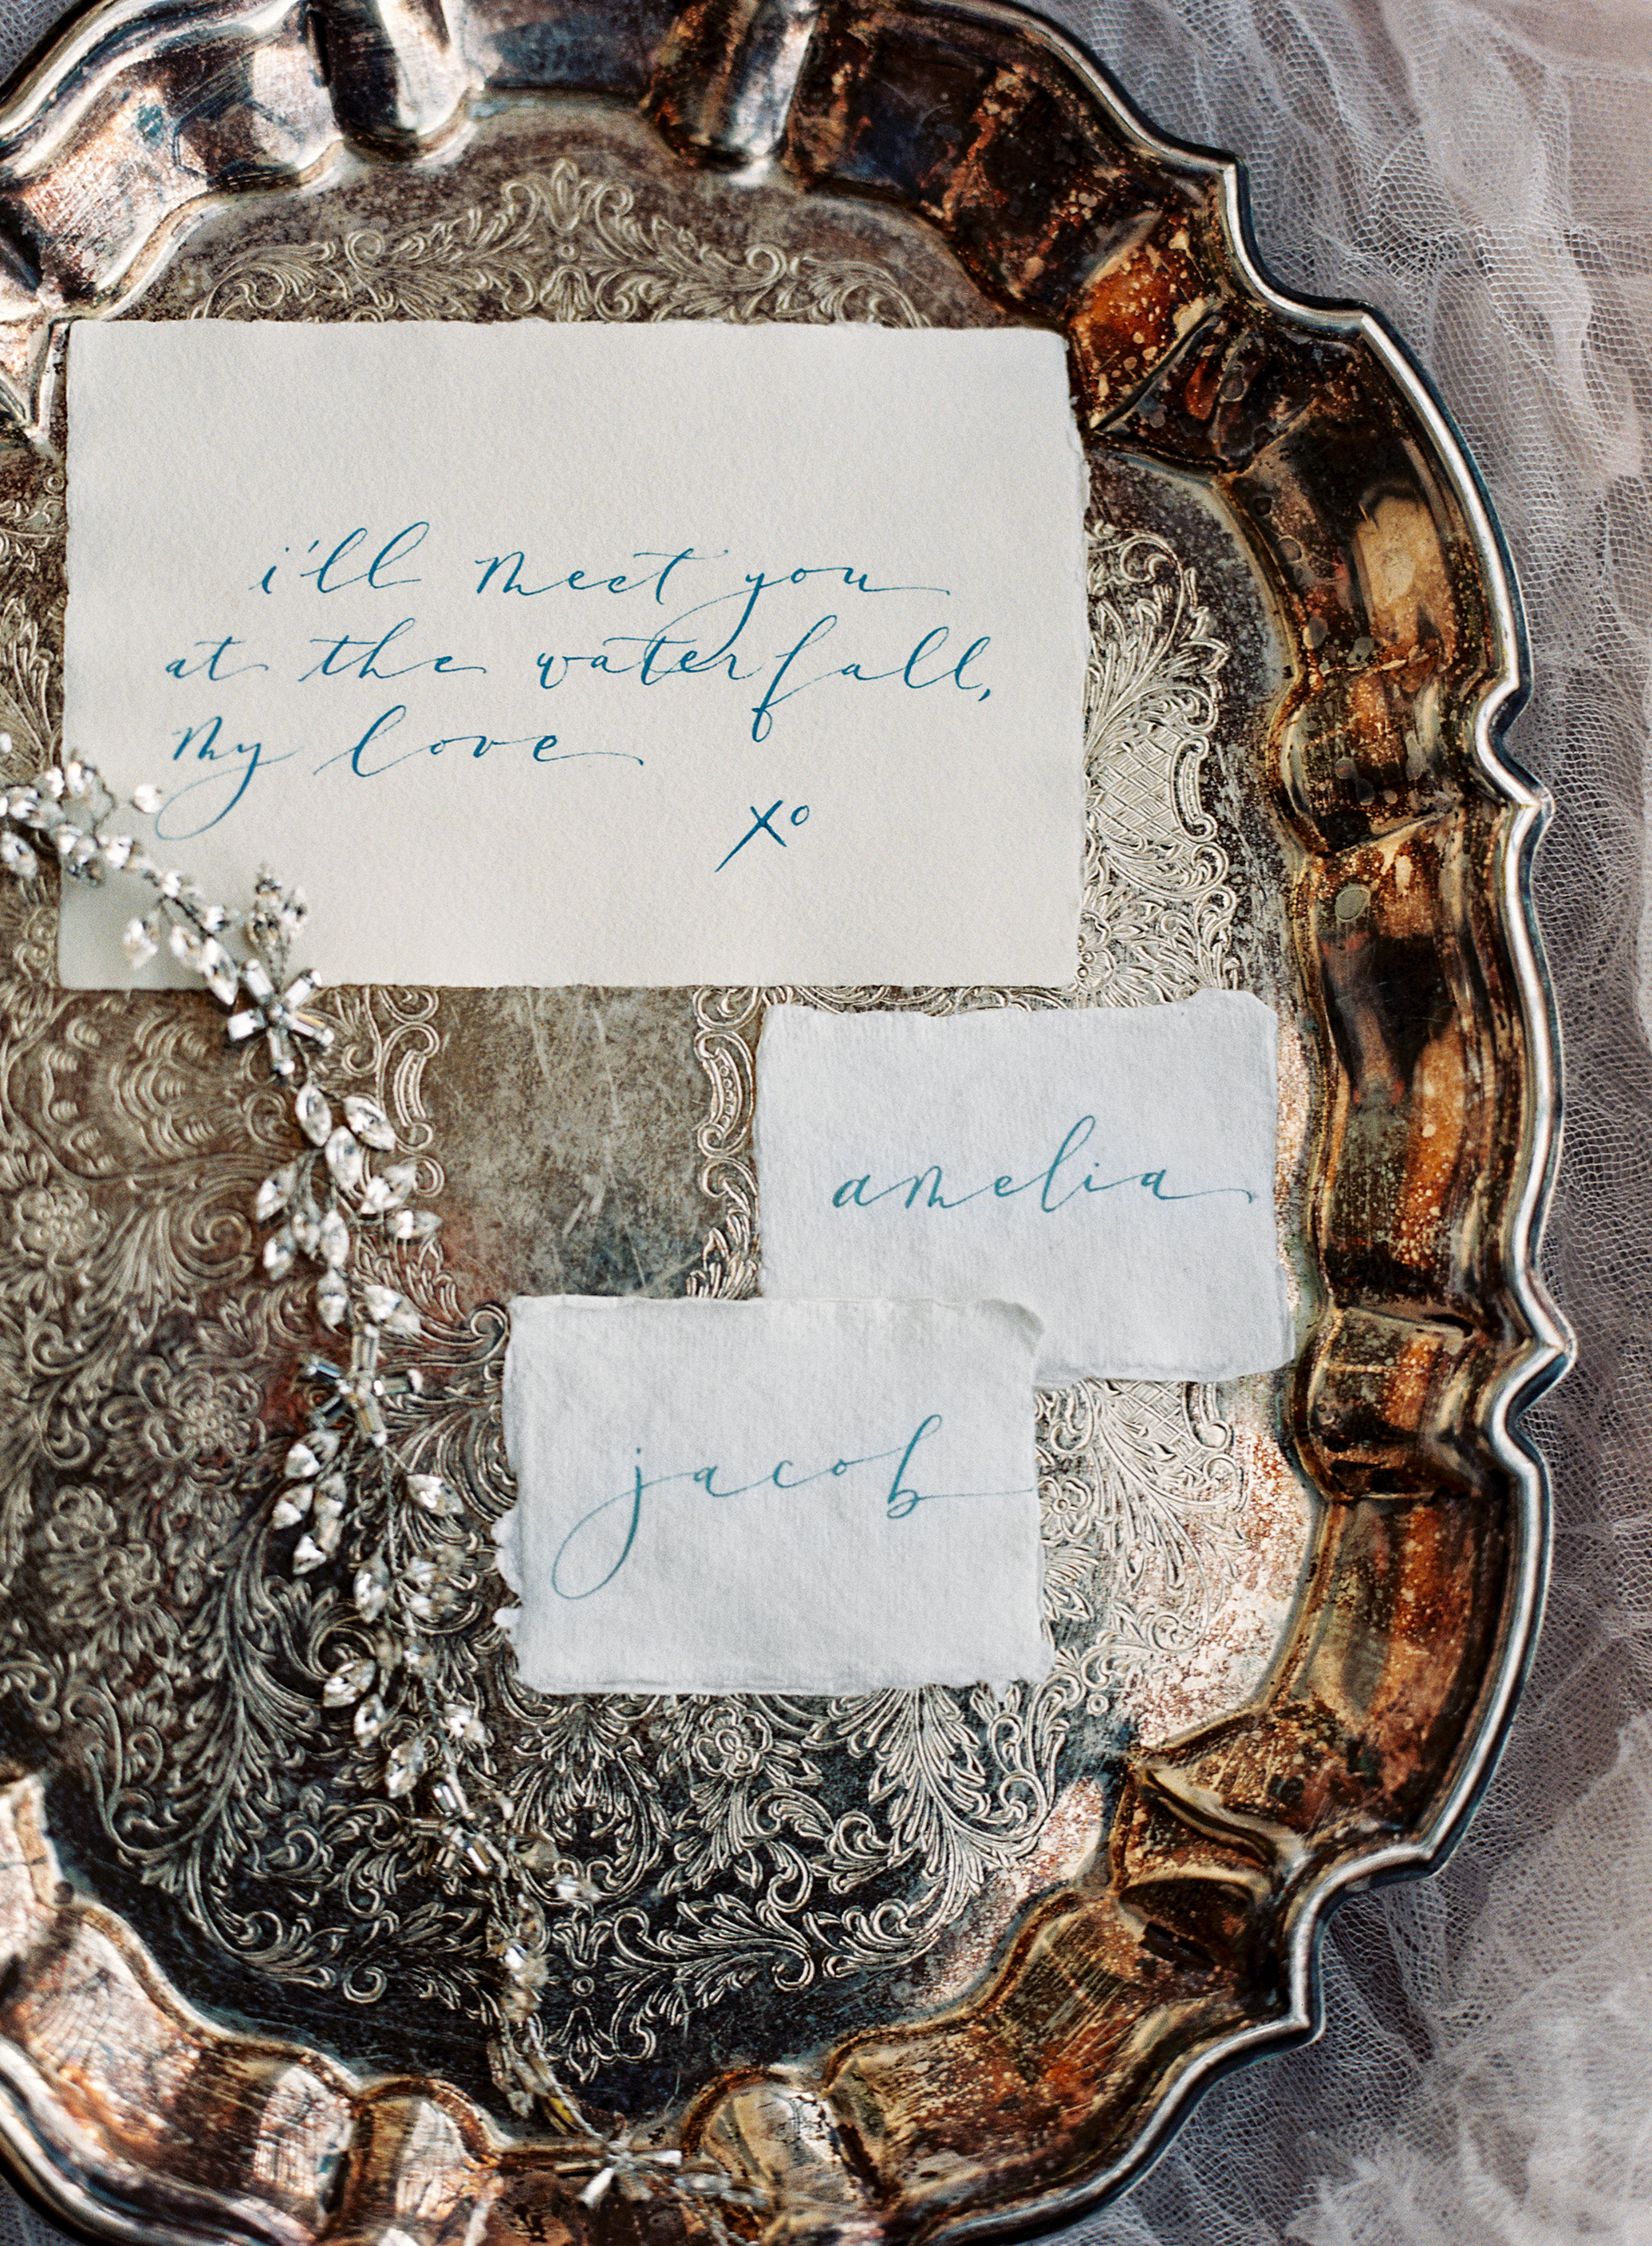 i'll meet you
at the waterfall,
my love
xo
amelia
jacob